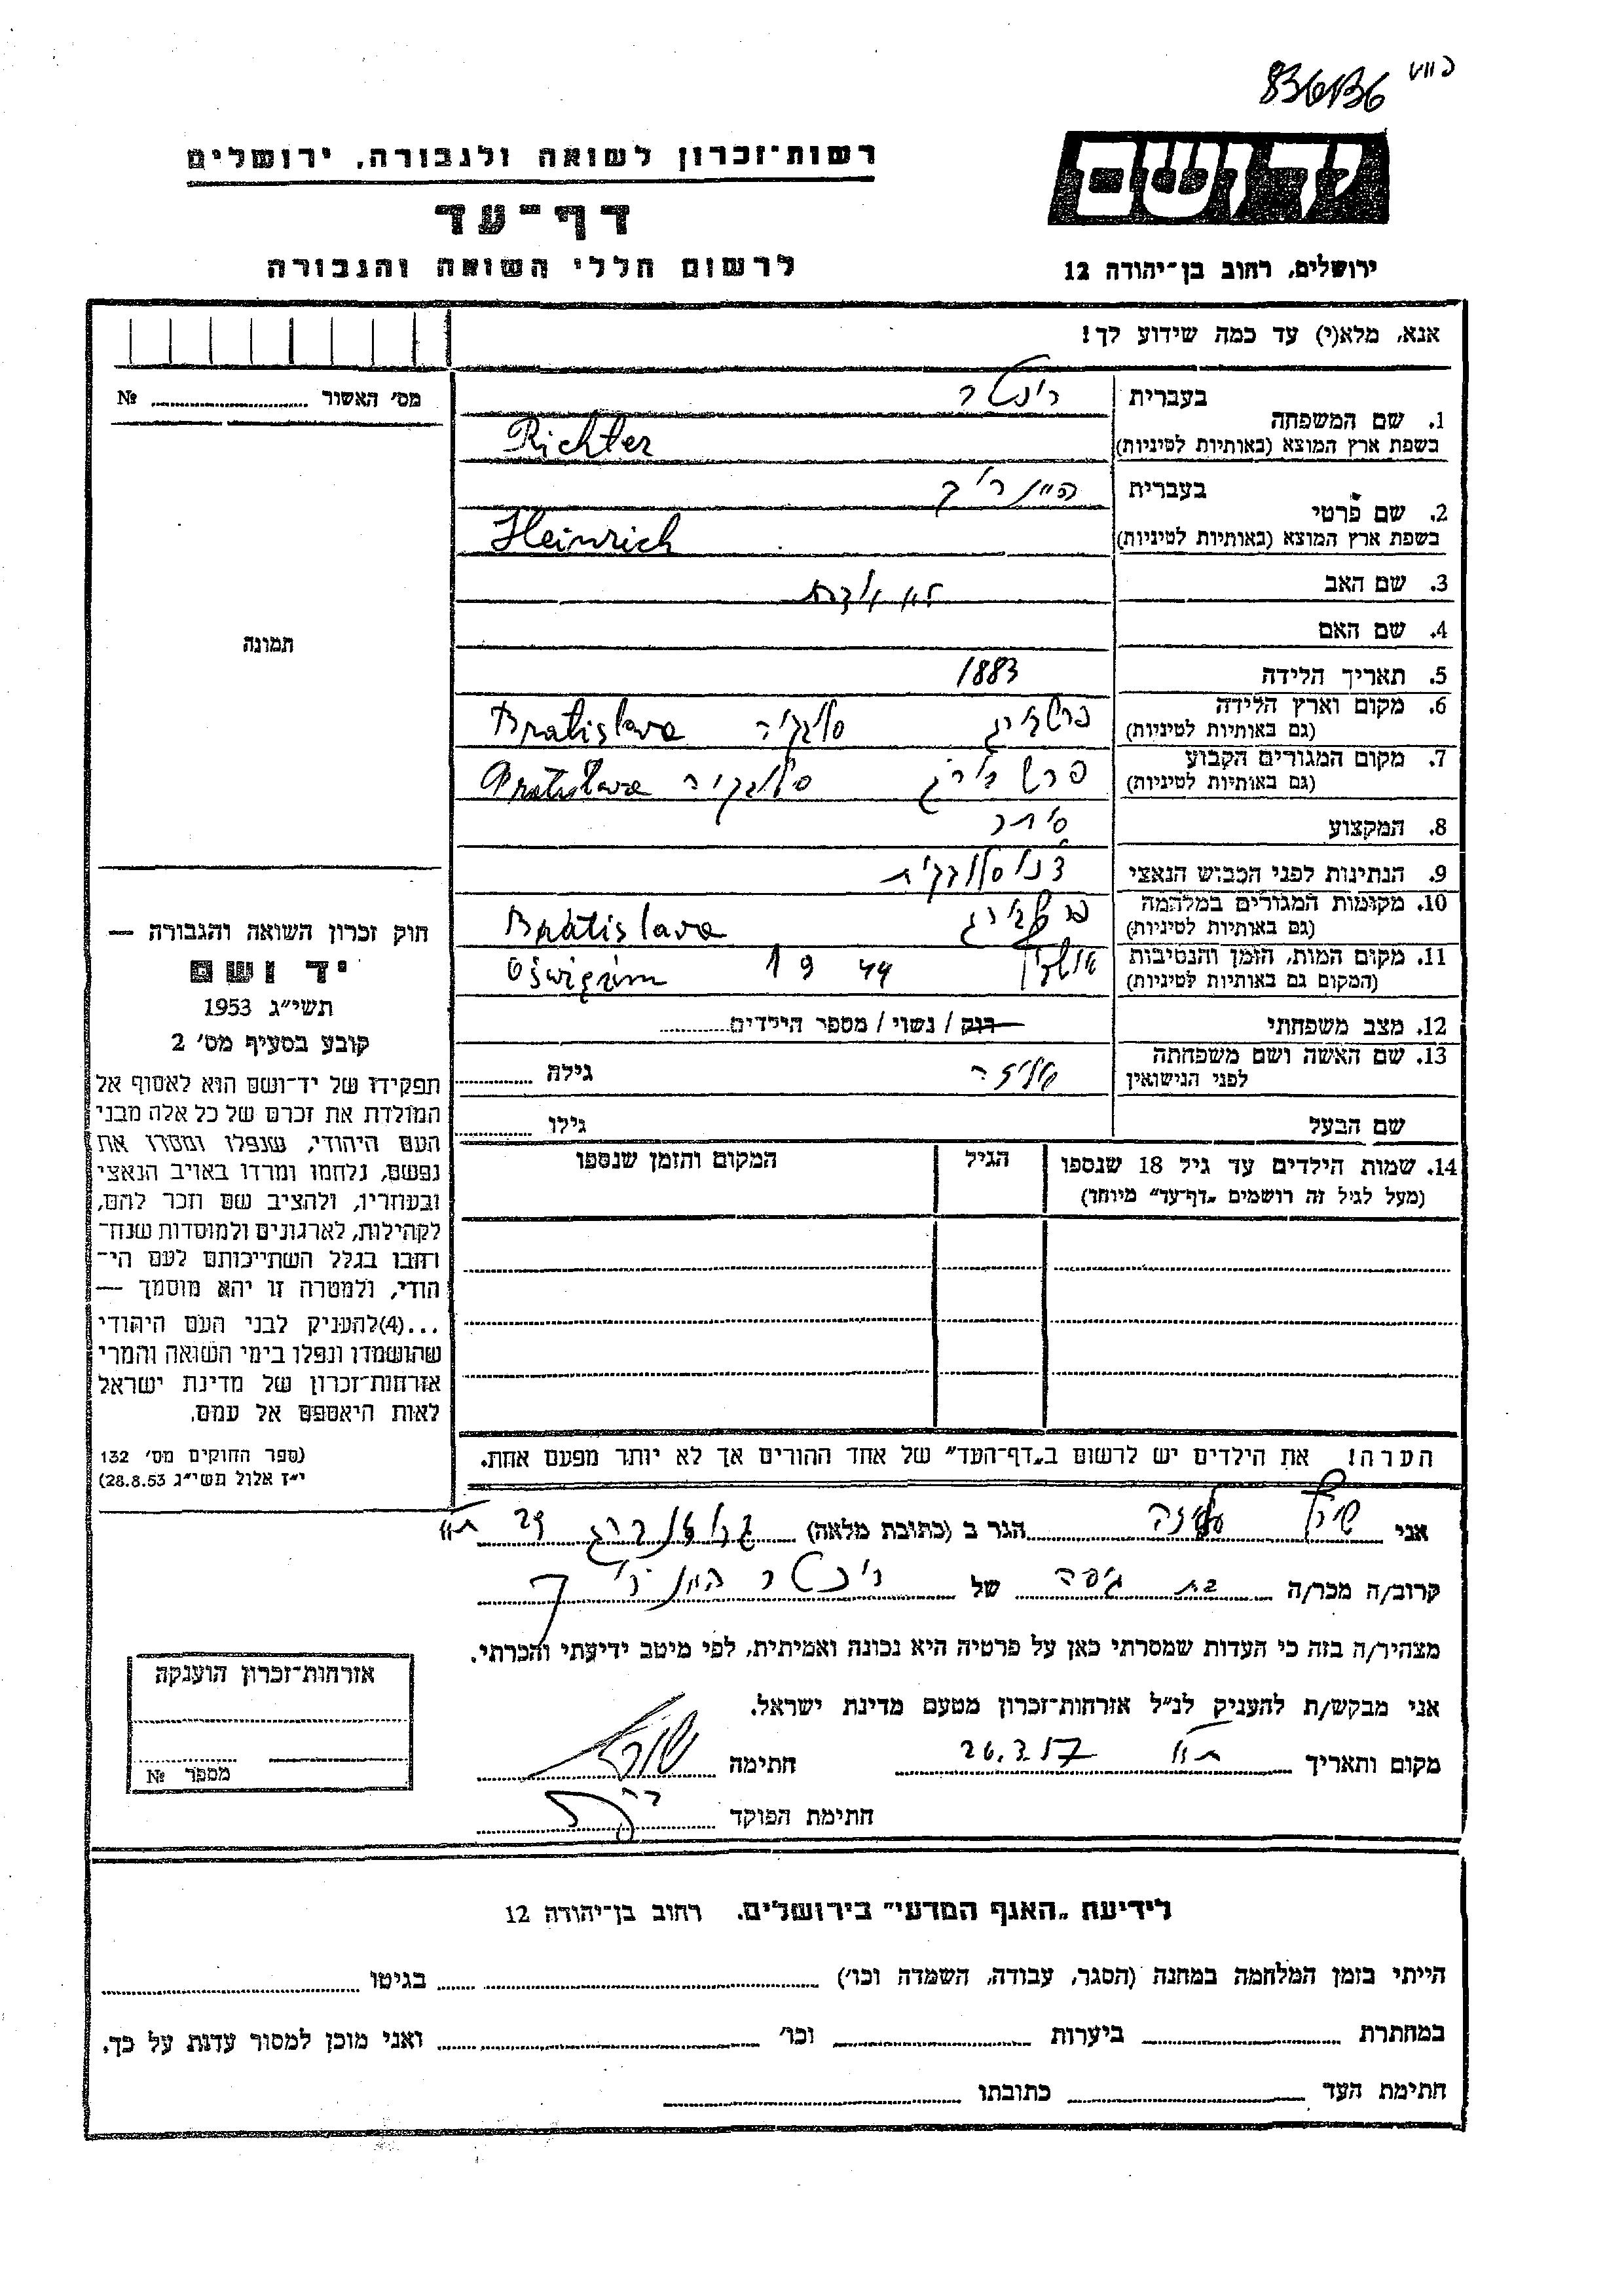 836136
רשות־זכרון לשואה ולגבורה, ירושלים
יד ושם
דף־עד
לרשום חללי השואה והגבורה
ירושלים, רחוב בן־יהודה 12
אנא, מלא(י) עד כמה שידוע לך!
מס׳ האשור № 
1. שם המשפחה
בעברית ריכטר
בשפת ארץ המוצא (באותיות לטיניות) Richter
2. שם פרטי
בעברית היינריך
בשפת ארץ המוצא (באותיות לטיניות) Heinrich
3. שם האב לא ידוע
4. שם האם
5. תאריך הלידה 1883
6. מקום וארץ הלידה
(גם באותיות לטיניות) פרשבורג סלובקיה Bratislava
7. מקום המגורים הקבוע
(גם באותיות לטיניות) פרשבורג סלובקיה Bratislava
8. המקצוע סוחר
9. הנתינות לפני הכבוש הנאצי צ׳כוסלובקית
10. מקומות המגורים במלחמה
(גם באותיות לטיניות) פרשבורג Bratislava
11. מקום המות, הזמן והנסיבות
(המקום גם באותיות לטיניות) 1944 Oświęcim
12. מצב משפחתי רוק / נשוי / מספר הילדים
13. שם האשה ושם משפחתה
לפני הנישואין
גילה
שם הבעל
גילו
14. שמות הילדים עד גיל 18 שנספו
(מעל לגיל זה רושמים „דף־עד״ מיוחד)
הגיל
המקום והזמן שנספו
תמונה
חוק זכרון השואה והגבורה —
יד ושם
תשי״ג 1953
קובע בסעיף מס׳ 2
תפקידו של יד־ושם הוא לאסוף אל
המולדת את זכרם של כל אלה מבני
העם היהודי, שנפלו ומסרו את
נפשם, נלחמו ומרדו באויב הנאצי
ובעוזריו, ולהציב שם וזכר להם,
לקהילות, לארגונים ולמוסדות שנח־
רובו בגלל השתייכותם לעם הי־
הודי, ולמטרה זו יהא מוסמך —
...(4)להעניק לבני העם היהודי
שהושמדו ונפלו בימי השואה והמרי
אזרחות־זכרון של מדינת ישראל
לאות היאספם אל עמם.
(ספר החוקים מס׳ 132
י״ז אלול תשי״ג 28.8.53)
הערה! את הילדים יש לרשום ב„דף־העד״ של אחד ההורים אך לא יותר מפעם אחת.
אני הגר ב (כתובת מלאה) 29
קרוב/ה מכר/ה של ריכטר היינריך
מצהיר/ה בזה כי העדות שמסרתי כאן על פרטיה היא נכונה ואמיתית, לפי מיטב ידיעתי והכרתי.
אני מבקש/ת להעניק לנ״ל אזרחות־זכרון מטעם מדינת ישראל.
מקום ותאריך 26.3.57 חתימה
חתימת הפוקד
אזרחות־זכרון הוענקה
מספר №
לידיעת „האגף המדעי״ בירושלים. רחוב בן־יהודה 12
הייתי בזמן המלחמה במחנה (הסגר, עבודה, השמדה וכו׳) בגיטו
במחתרת ביערות וכו׳ ואני מוכן למסור עדות על כך.
חתימת העד כתובתו